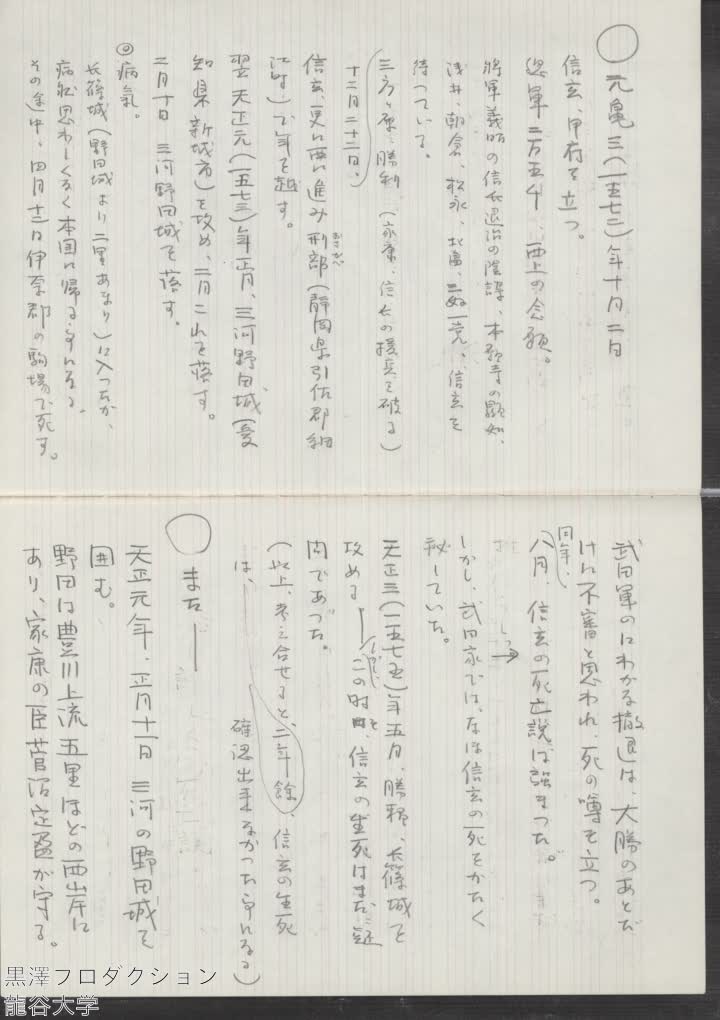 ○ 元亀三(一五七二)年十月二日
信玄、甲府を立つ。
総軍二万五千、西上の念願。
将軍義昭の信長退治の陰謀、本願寺の顕如、
浅井、朝倉、松永、北畠、一党、信玄を
待っている。
三方ヶ原、勝利(家康、信長の援兵を破る)
十二月二十二日、
信玄、更に西に進み刑部(静岡県引佐郡細
おさかべ
江町)で年を越す。
翌天正元(一五七三)年正月、三河野田城(愛
知県新城市)を攻め、二月これを落す。
二月十日 三河野田城を落す。
◎病気。
長篠城(野田城より二里あまり)に入ったが、
病状思わしくなく本国に帰る
その途中、四月十二日伊奈郡の駒場で死す。
武田軍のにわかな撤退は、大勝のあとだ
けに不審と思われ、死の噂を立つ。
同年、
八月、信玄の死亡説は強まった。
しかし、武田家では、なほ信玄の死をかたく
秘していた。
天正三(一五七五)年五月、勝頼、長篠城を
攻める──この時、信玄の生死はまだ疑
問であった。
(以上、考え合せると、二年餘、信玄の生死
は、 確認出来なかった)
○ また──
天正元年、正月十一日 三河の野田城を
囲む。
野田は豊川上流五里ほどの西岸に
あり、家康の臣菅沼定盈が守る。
黒澤プロダクション
龍谷大学